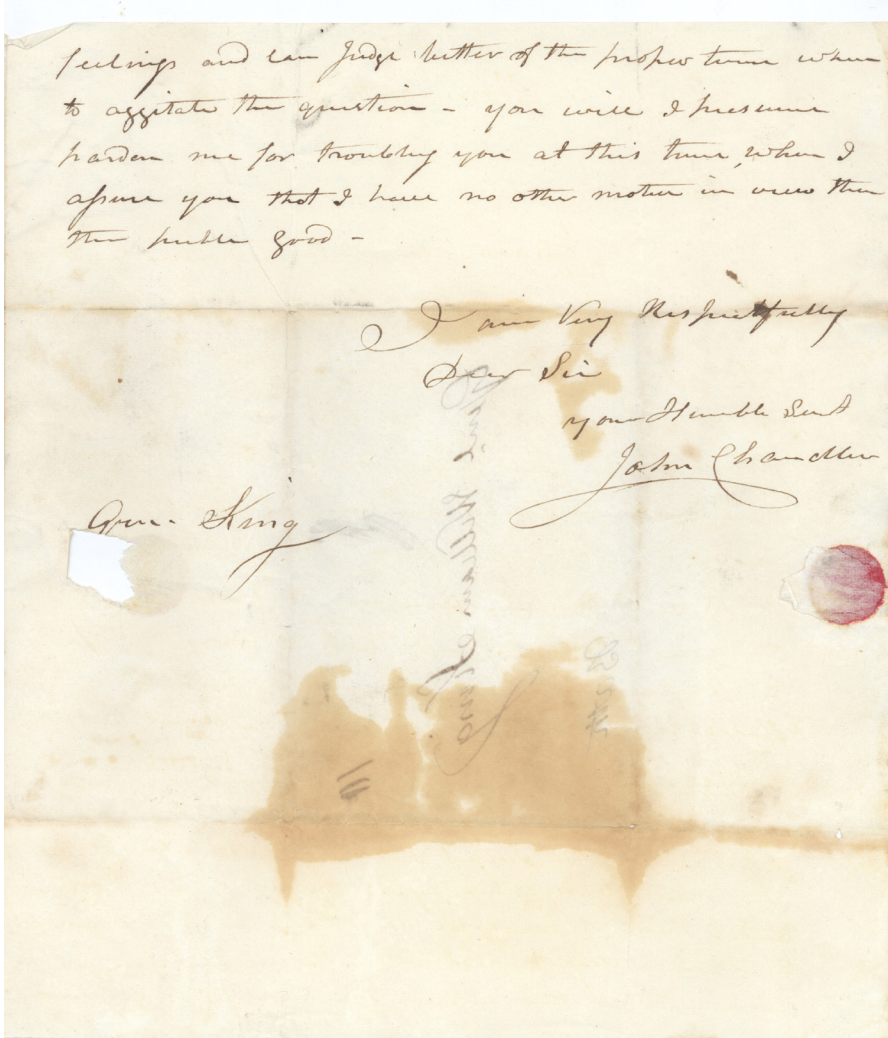 feelings and can Judge better of the proper time when
to aggitate the question - you will I presume
pardon me for troubling you at this time, when I
assure you that I have no other motive in view then
the publick good -
I am Very Respectfully
Dear Sir
your Humble Servt
John Chandler
Genl. King
Honl William King
Bath